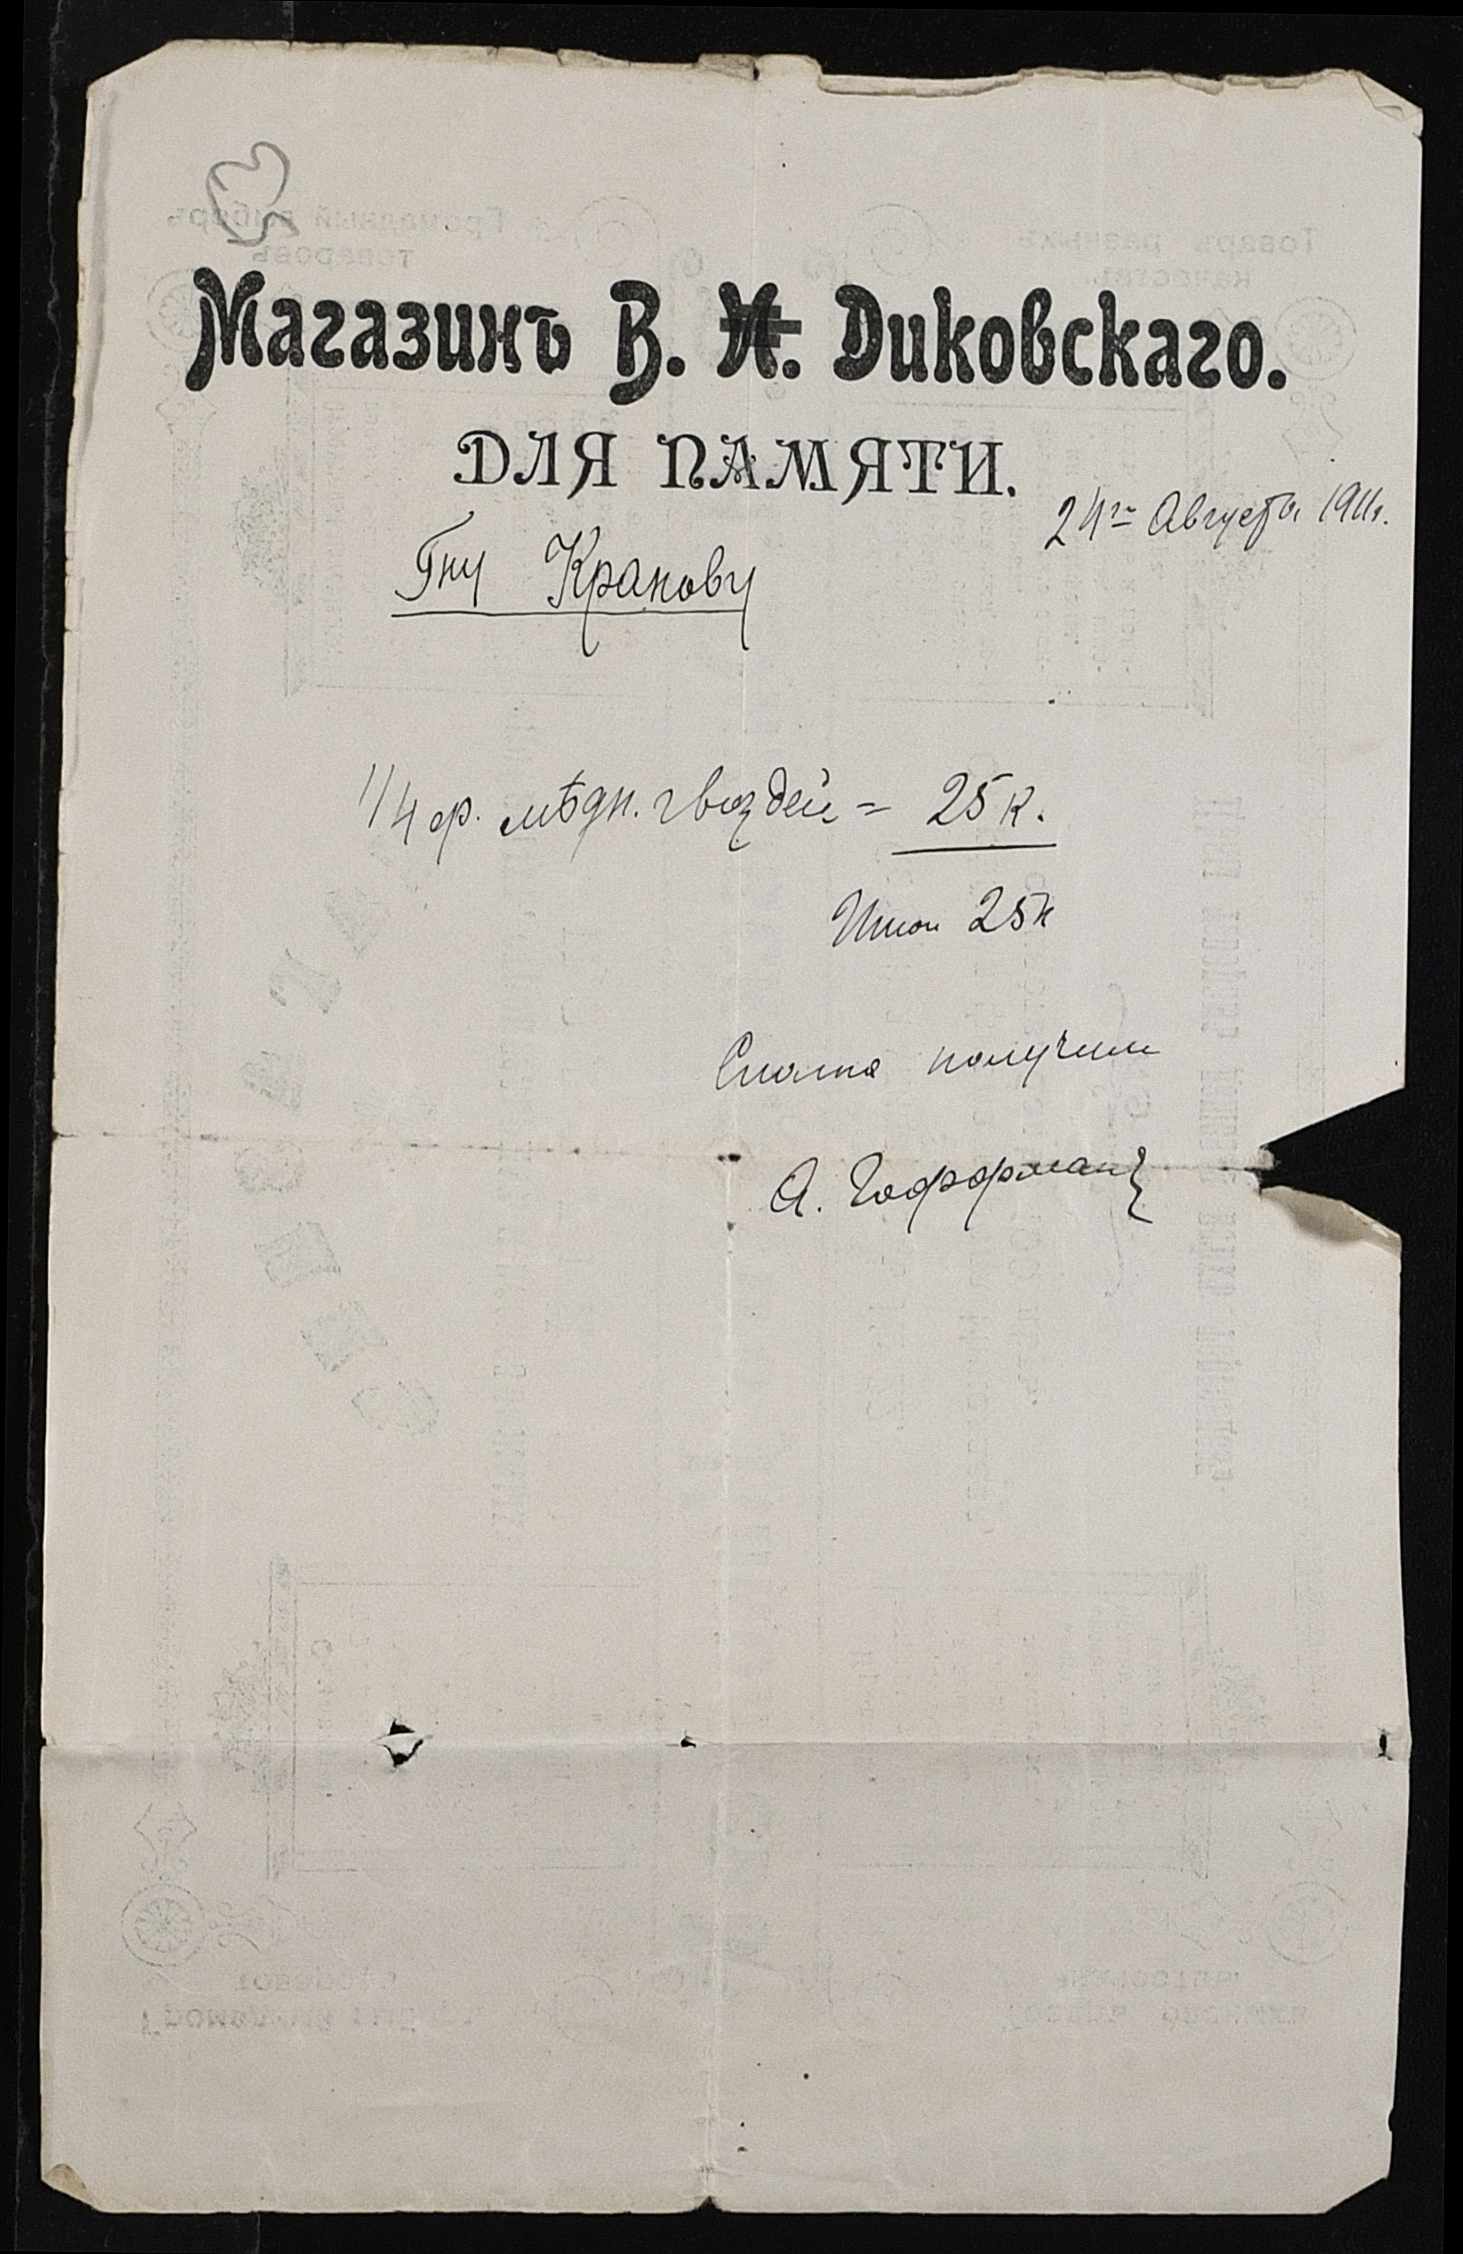 Магазинъ В. И. Диковскаго.
ДЛЯ ПАМЯТИ.
24го Августа 1911г.
Гну Кранову
1/4 ф. мѣдн. гвоздей = 25 к.
Итого 25к
Сполна получилъ
А. Гоффманъ